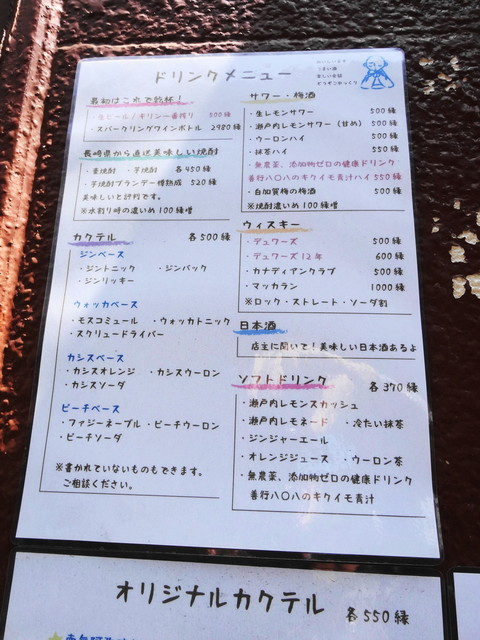 ドリンクメニュー
おいしーもの
うまい酒
楽しいお話
どうぞごゆっくり
最初はこれで乾杯！
・生ビール/キリン一番搾り 500縁
・スパークリングワインボトル 2980縁
長崎県から直送美味しい焼酎
・麦焼酎 ・芋焼酎 各450縁
・芋焼酎ブランデー樽熟成 520縁
美味しいと評判です。
※水割り時の濃いめ100縁増
カクテル 各500縁
ジンベース
・ジントニック ・ジンバック
・ジンリッキー
ウォッカベース
・モスコミュール ・ウォッカトニック
・スクリュードライバー
カシスベース
・カシスオレンジ ・カシスウーロン
・カシスソーダ
ピーチベース
・ファジーネーブル ・ピーチウーロン
・ピーチソーダ
※書かれていないものもできます。
ご相談ください。
サワー・梅酒
・生レモンサワー 500縁
・瀬戸内レモンサワー（甘め） 500縁
・ウーロンハイ 500縁
・抹茶ハイ 550縁
・無農薬、添加物ゼロの健康ドリンク
善行八〇八のキクイモ青汁ハイ 550縁
・白加賀梅の梅酒 500縁
※焼酎濃いめ100縁増
ウィスキー
・デュワーズ 500縁
・デュワーズ12年 600縁
・カナディアンクラブ 500縁
・マッカラン 1000縁
※ロック・ストレート・ソーダ割
日本酒
店主に聞いて！美味しい日本酒あるよ
ソフトドリンク 各370縁
・瀬戸内レモンスカッシュ
・瀬戸内レモネード ・冷たい抹茶
・ジンジャーエール
・オレンジジュース ・ウーロン茶
・無農薬、添加物ゼロの健康ドリンク
善行八〇八のキクイモ青汁
オリジナルカクテル 各550縁